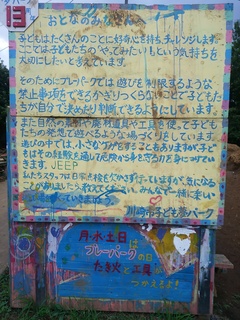 おとなのみなさんへ
子どもはたくさんのことに好奇心を持ち、チャレンジします。
ここでは子どもたちの「やってみたい」という気持ちを
大切にしたいと考えています。
そのためにプレーパークでは遊びを制限するような
禁止事項をできるかぎりつくらないことで子どもたち
が自分で決めたり判断できるようにしています。
また自然の素材や廃材道具や工具を使って子どもた
ちの発想で遊べるような場づくりをしています。
遊びの中では、小さなケガをすることもありますが、子ど
もはその経験を通して危険から身を守る力を身につけてい
きます。
私たちスタッフは
ことがありましたら教えてください。みんなで一緒に楽しい
川崎市子ども夢パーク
月・水・土・日は
プレーパークの日
たき火と工具が
つかえるよ!